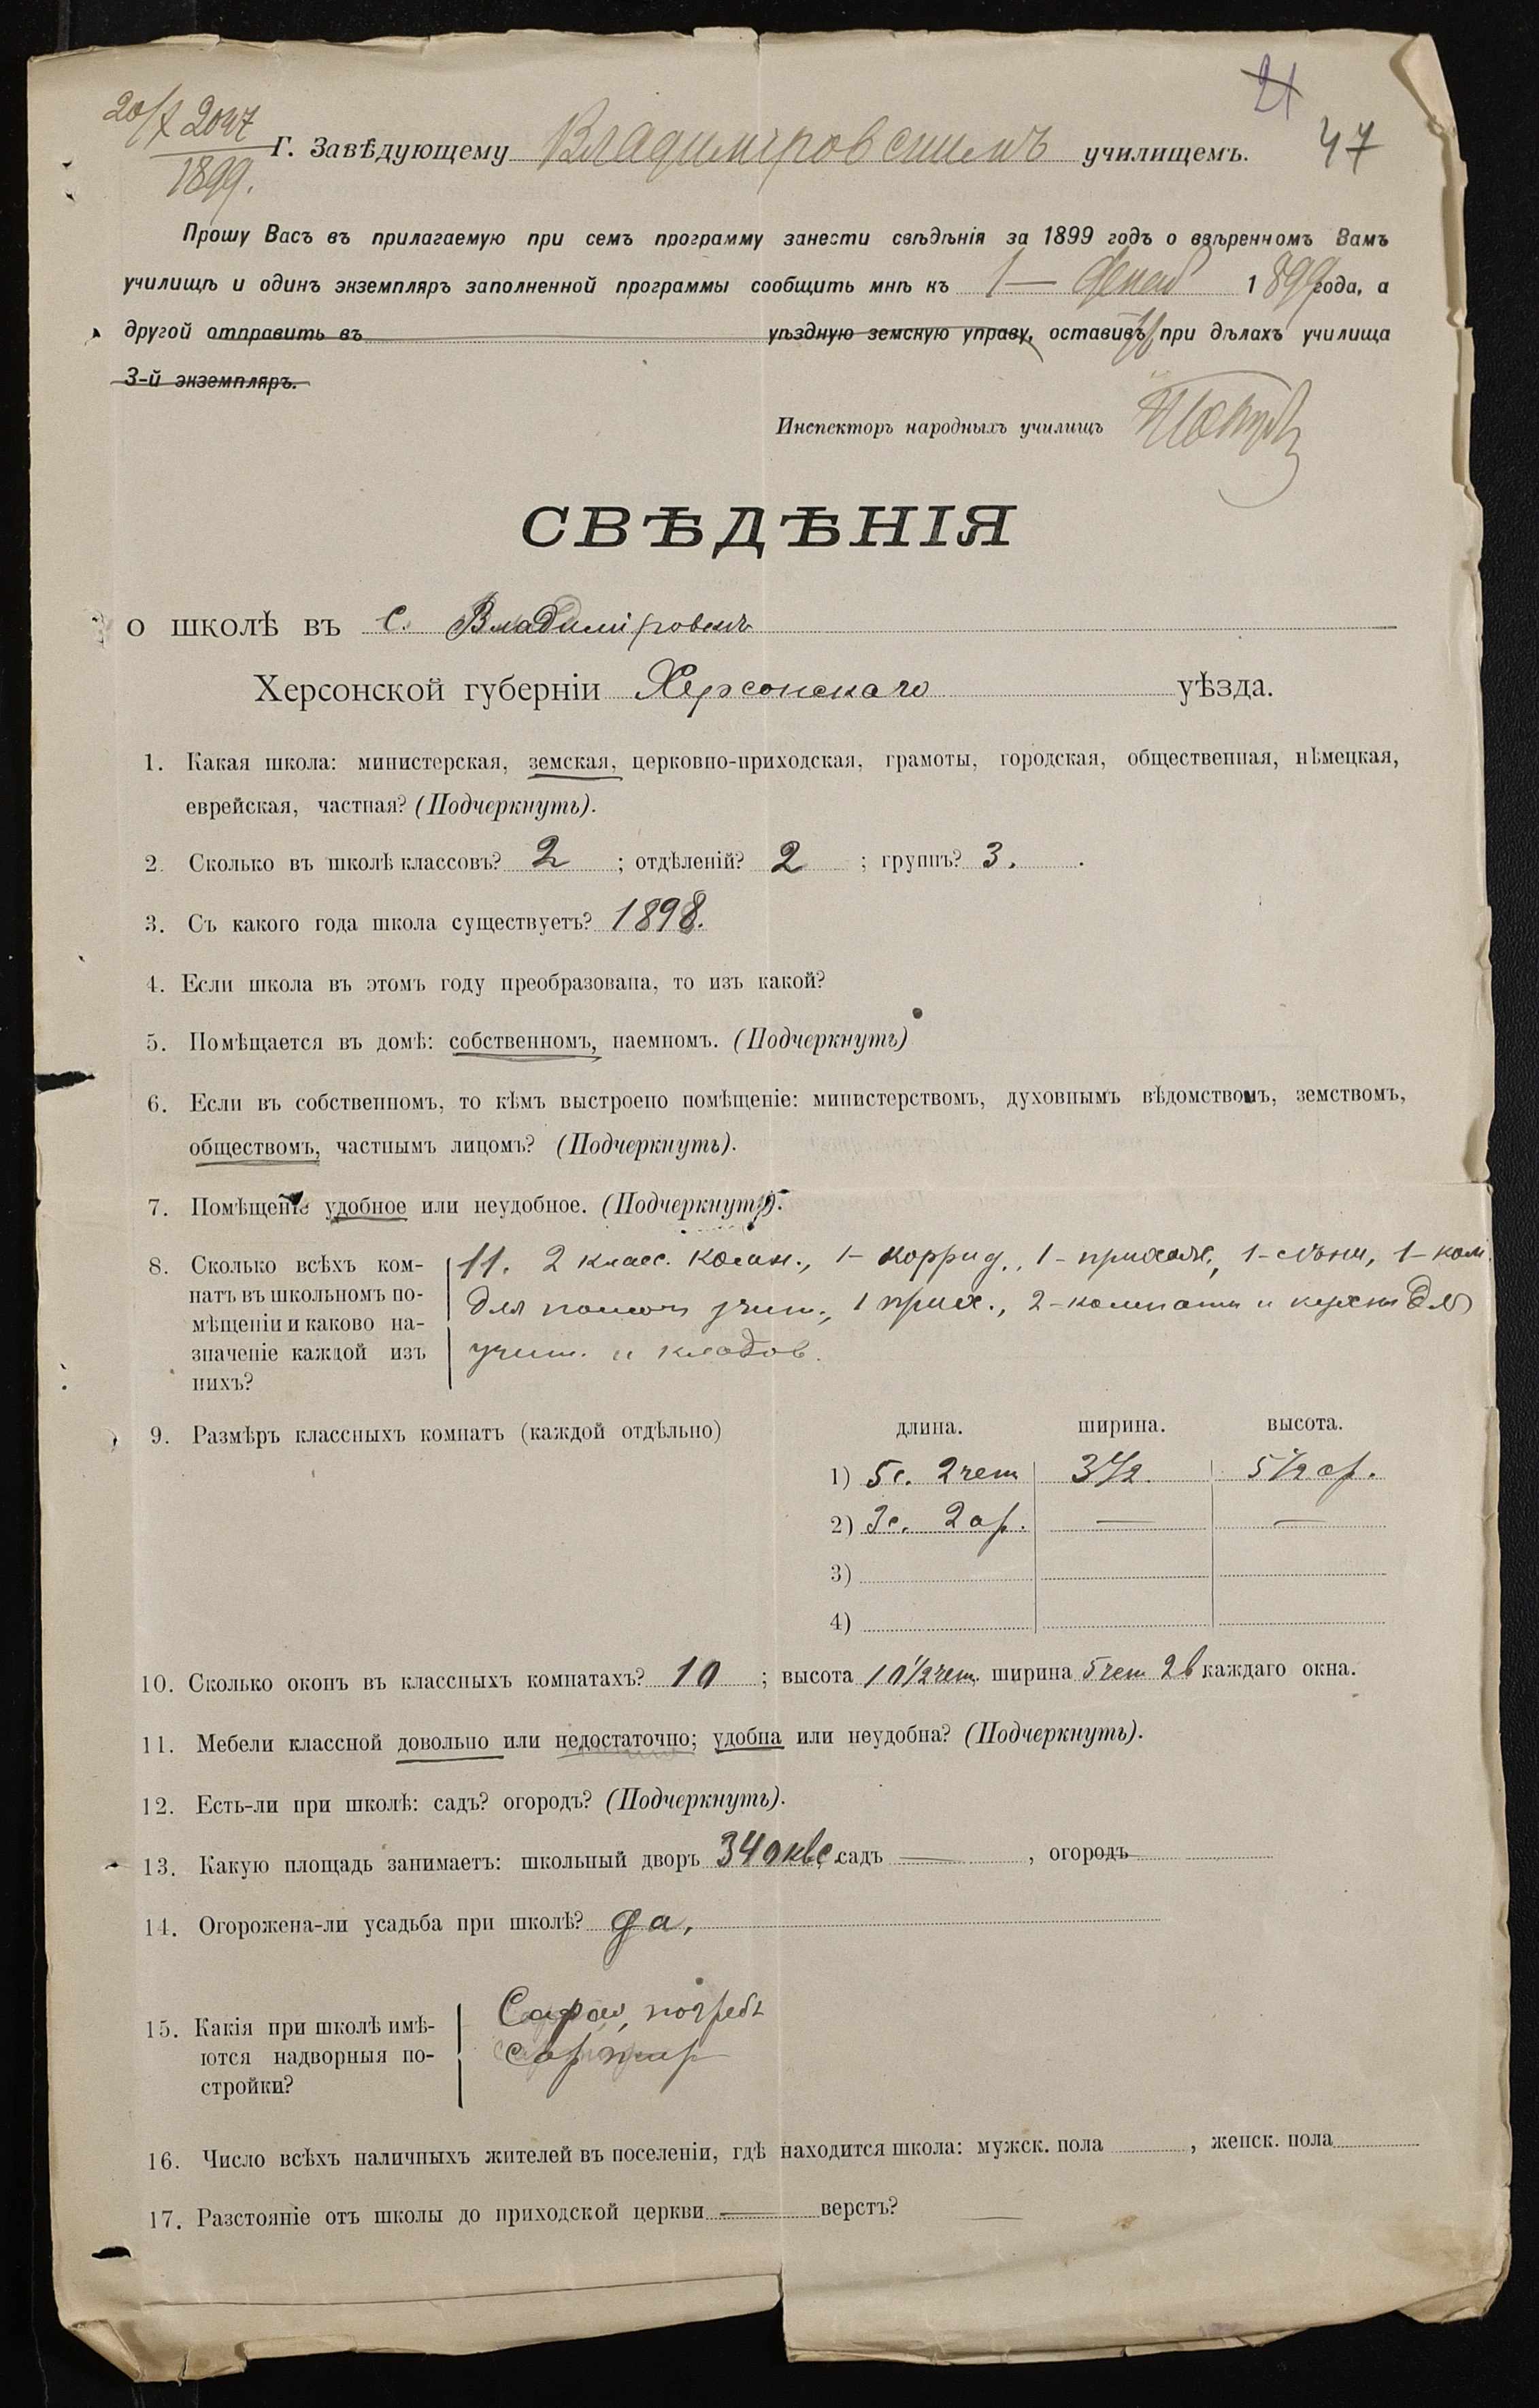 21
47
20/X 2047
1899.
Г. Завѣдующему Владимировскимъ училищемъ.
Прошу Васъ въ прилагаемую при семъ программу занести свѣдѣнія за 1899 годъ о ввѣренномъ Вамъ
училищѣ и одинъ экземпляръ заполненной программы сообщить мнѣ къ 1 — Декаб 1899 года, а
другой отправить въ уѣздную земскую управу, оставивъ при дѣлахъ училища
3-й экземпляръ.
Инспекторъ народныхъ училищъ
СВѢДѢНІЯ
о школѣ въ с. Владимiровкѣ
Херсонской губерніи Херсонскаго уѣзда.
1. Какая школа: министерская, земская, церковно-приходская, грамоты, городская, общественная, нѣмецкая,
еврейская, частная? (Подчеркнуть).
2. Сколько въ школѣ классовъ? 2 ; отдѣленій? 2 ; группъ? 3. .
3. Съ какого года школа существуетъ? 1898.
4. Если школа въ этомъ году преобразована, то изъ какой?
5. Помѣщается въ домѣ: собственномъ, наемномъ. (Подчеркнуть)
6. Если въ собственномъ, то кѣмъ выстроено помѣщеніе: министерствомъ, духовнымъ вѣдомствомъ, земствомъ,
обществомъ, частнымъ лицомъ? (Подчеркнуть).
7. Помѣщеніе удобное или неудобное. (Подчеркнуть).
8. Сколько всѣхъ ком-
натъ въ школьномъ по-
мѣщеніи и каково на-
значеніе каждой изъ
нихъ?
11. 2 класс. комн., 1- коррид., 1- прихож., 1- сѣни, 1- ком.
для помощ учит., 1 прих., 2- комнаты и кухня для
учит. и кладов.
9. Размѣръ классныхъ комнатъ (каждой отдѣльно)
длина. ширина. высота.
1) 5с. 2 чет 3 1/2. 5 1/2 ар.
2) 3с. 2 ар. — —
3)
4)
10. Сколько оконъ въ классныхъ комнатахъ? 10 ; высота 10 1/2 чет. ширина 5 чет 2в каждаго окна.
11. Мебели классной довольно или недостаточно; удобна или неудобна? (Подчеркнуть).
12. Есть-ли при школѣ: садъ? огородъ? (Подчеркнуть).
13. Какую площадь занимаетъ: школьный дворъ 340 квс. садъ — , огородъ
14. Огорожена-ли усадьба при школѣ? да,
15. Какія при школѣ имѣ-
ются надворныя по-
стройки?
Сарай, погребъ
16. Число всѣхъ наличныхъ жителей въ поселеніи, гдѣ находится школа: мужск. пола , женск. пола
17. Разстояніе отъ школы до приходской церкви — верстъ?